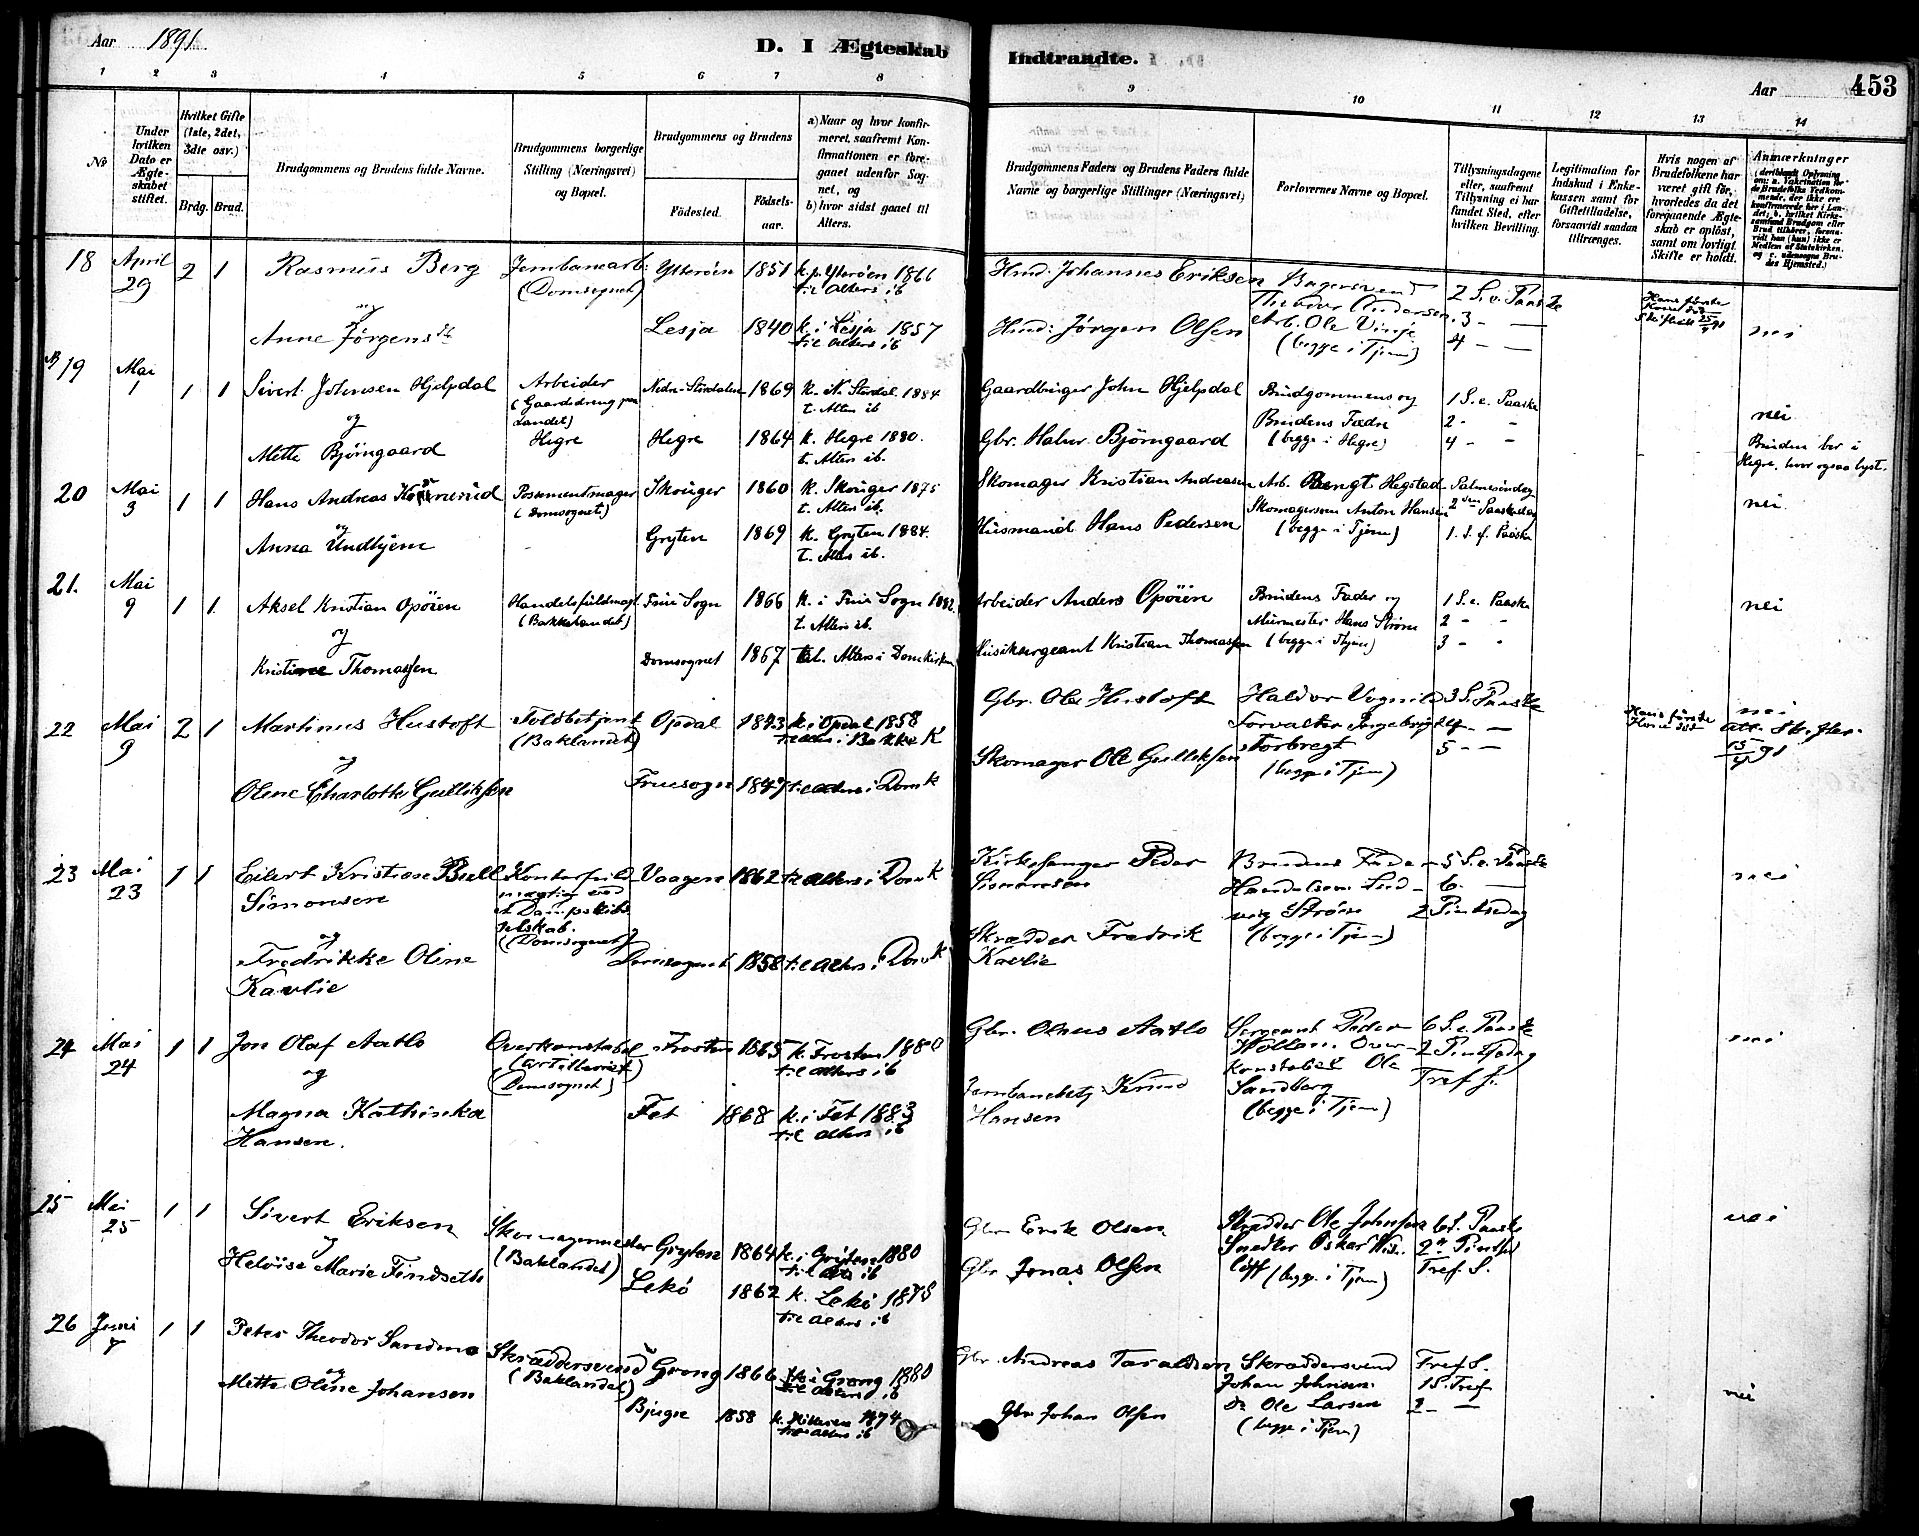 Aar 1891
D. I Ægteskab Indtraadte.
Aar 453
1 2 3 4 5 6 7 8 9 10 11 12 13 14
No
Under hvilken Dato er Ægteskabet stiftet.
Hvilket Gifte (1ste, 2det, 3die osv.)
Brdg. Brud.
Brudgommens og Brudens fulde Navne.
Brudgommens borgerlige Stilling (Næringsvei) og Bopæl.
Brudgommens og Brudens
Fødested. Fødselsaar.
a) Naar og hvor konfirmeret, saafremt Konfirmationen er foregaaet udenfor Sognet, og
b) hvor sidst gaaet til Alters.
Brudgommens Faders og Brudens Faders fulde Navne og borgerlige Stillinger (Næringsvei)
Forlovernes Navne og Bopæl.
Tillysningsdagene eller, saafremt Tillysning ei har fundet Sted, efter hvilken Bevilling.
Legitimation for Indskud i Enkekassen samt for Giftetilladelse, forsaavidt saadan tiltrænges.
Hvis nogen af Brudefolkene har været gift før, hvorledes da det foregaaende Ægteskab er opløst, samt om lovligt Skifte er holdt.
Anmærkninger
18 April 29 2 1 Rasmus Berg Jernbanearb. (Domsognet) Ytterøen 1851 k. p. Ytterøen 1866 til Alters ib
og
Anne Jørgensdt. Lesja 1840 k. i Lesja 1857 til Alters ib
Hmd. Johannes Eriksen
Hmd. Jørgen Olsen
Bagersvend Theodor Andersen. Arb. Ole Vinje (begge i Tjem)
2 S. e. Paaske 3 - — 4 - —
Hans første Kone død
nei
19 Mai 1 1 1 Sivert Johnsen Hjelpdal Arbeider (Gaardsdreng paa Landet) Hegre Nedre-Stördalen 1869 k. i N. Stordal. 1884 t. Alters ib
og
Mette Bjørngaard Hegre 1864 k. Hegre 1880. t. Alters ib.
Gaardbruger John Hjelpdal
Gbr. Halvor Björngaard
Brudgommens og Brudens Fædre (begge i Hegre)
1 S. e. Paaske 2 - - 4 - -
nei
Bruden bor i Hegre, hvor ogsaa lyst.
20 Mai 3 1 1 Hans Andreas Posementmager (Domsognet) Skouger 1860 k. Skouger 1875 t. Alters ib.
og
Anna Undhjem Gryten 1869 k. Gryten 1884. t. Alters ib.
Skomager Kristian Andreasen
Husmand Hans Pedersen
Arb. Bengt Hegstad Skomagersven Anton Hansen (begge i Tjem)
Palmesøndag 2den Paaskedag 1. S. e. Paaske
nei
21. Mai 9 1 1. Aksel Kristian Opöien Handelsfuldmægt (Bakkelandet) Frue Sogn 1866 k. i Frue Sogn 1882. t. Alters ib.
og
Kristine Thomassen Domsognet 1867 til. Alters i Domkirken
Arbeider Anders Opöien
Musiksergeant Kristian Thomassen
Brudens Fader og Murmester Hans Strøm (begge i Tjem)
1 S. e. Paaske 2 - - 3 - -
nei
22 Mai 9 2 1 Martinus Hustoft Toldbetjent (Baklandet) Opdal 1843 k. i Opdal 1858 til Alters i Bakke K
og
Oline Charlotte Gulliksen Fruesogn 1847 til alters i Domk
Gbr. Ole Hustoft
Skomager Ole Gulliksen
Haldor Vognild Forvalter Ingebrigt Storbregt (begge i Tjem)
3 S. e. Paaske 4 - — 5 - —
Hans første Kone død
nei
23 Mai 23 1 1 Eilert Kristian Bull Simonsen Kontorfuldmægtig ved et Dampskibsselskab. (Domsognet) Vaagen 1862 til alters i Domk
og
Fredrikke Oline Kavlie Domsognet 1858 til alters i Domk
Kirkesanger Peder Simonsen
Skrædder Fredrik Kavlie
Brudens Fader Handelsm. Ludvig Strøm (begge i Tjem)
5 S. e. Paaske 6. — 2 Pintsedag
nei
24 Mai 24 1 1 Jon Olaf Aatlo Overkonstabel (Artilleriet) (Domsognet) Frosten 1865 k. Frosten 1880 til alters ib
og
Magna Kathinka Hansen. Fet 1868 k. i Fet 1883 til alters ib
Gbr. Olaus Aatlo
Jernbanebetj. Knud Hansen
Sergeant Peder Wollan Overkonstabel Ole Sandberg (begge i Tjem)
6 S. e. Paaske 2 Pintsedag Tref. S.
nei
25 Mai 25 1 1 Sivert Eriksen Skomagermester (Baklandet) Gryten 1864 k. i Gryten 1880 til alters ib
og
Heloise Marie Findseth Lekö 1862 k. Lekö 1878 til Alters ib
Gbr Erik Olsen
Gbr Jonas Olsen
Skrædder Ole Johnsen Snedker Oskar Wisløff (begge i Tjem)
6 S. Paaske 2n Pintsed Tref. S.
nei
26 Juni 7 1 1 Peter Theodor Sandmo Skræddersvend (Baklandet) Grong 1866 k. i Grong 1880 til Alters ib
og
Mette Oline Johansen Bjugn 1858 k. Hitteren 1874 til alters ib
Gbr. Andreas Taraldsen
Gbr Johan Olsen
Skræddersvend Johan Johnsen do Ole Larsen (begge i Tjem)
Tref. S. 1 S. Tref 2 - —
nei